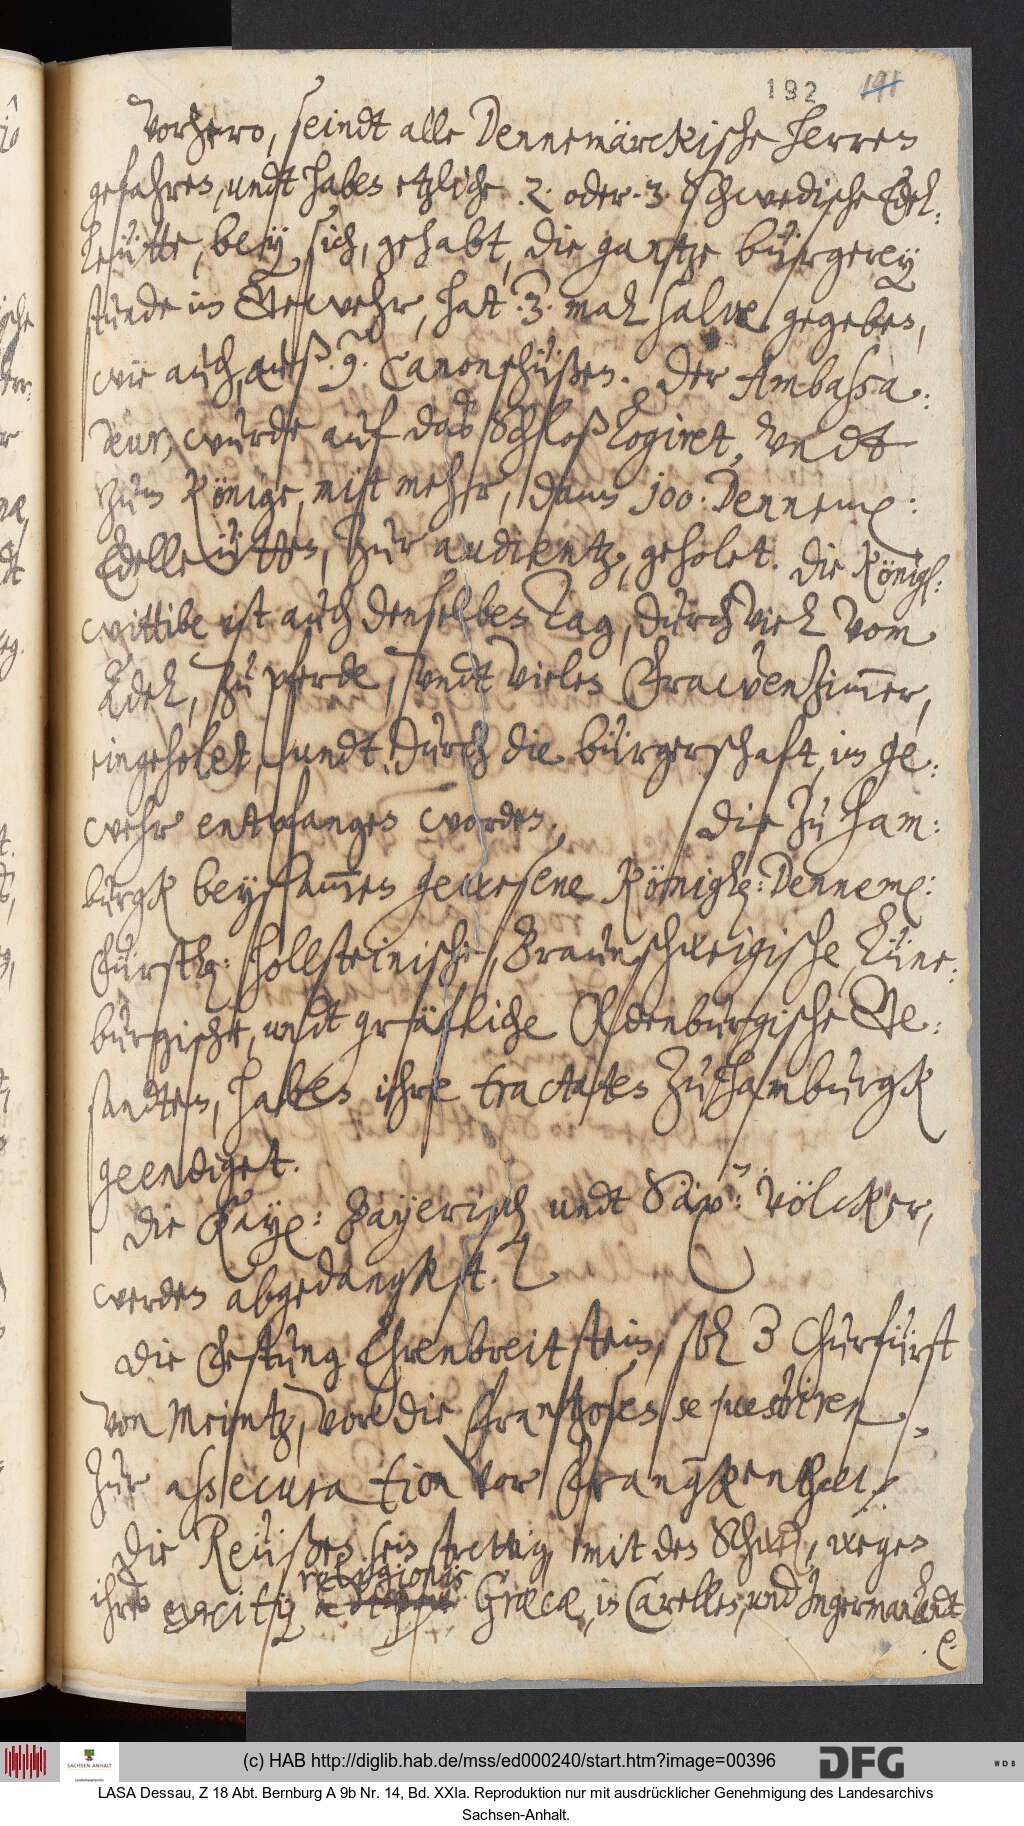 192 191
Vorhero, seindt alle Dennemärckische herren
gefahren, undt haben etzliche .2. oder .3. Schwedische Edel:
leütte, bey sich, gehabt, die gantze bürgerey
stunde im Gewehr, hat .3. mal salve gegeben,
wie auch, auß .9. Canonschüßen. Der Ambassa:
deur, wurde auf das Schloß logiret, undt
zum Könige, mitt mehr, dann 100. Dennem:
Edelleütten, zur audientz, geholet. Die Königl:
wittibe ist auch denselben Tag, durch viel vom
Adel, zu pferde, undt vieles Frawenzimmer,
eingeholet, undt durch die bürgerschaft, im ge:
wehr entpfangen worden. Die zu Ham:
burgk beysammen gewesene Königl: Dennem:
Fürstl: Hollsteinische, Braunschweigische, Lüne:
burgische, undt gräfliche Oldenburgische Ge:
sandten, haben ihre tractaten zu Hamburgk
geendiget.
Die Kay: Bayerisch undt Säx: Völcker,
werden abgedangkt.
Die Festung Ehrenbreitstein, soll Churfürst
von Meintz, vor die Frantzosen sequestiren,
zur assecuration vor Frangkenthal.
Die Reüßen sein strettig mit den Schwed, wegen
religionis
ihres exercity Græcæ, in Carellen, und Ingermanlandt
e
(c) HAB http://diglib.hab.de/mss/ed000240/start.htm?image=00396
SACHSEN-ANHALT
DFG
WDB
LASA Dessau, Z 18 Abt. Bernburg A 9b Nr. 14, Bd. XXIa. Reproduktion nur mit ausdrücklicher Genehmigung des Landesarchivs
Sachsen-Anhalt.